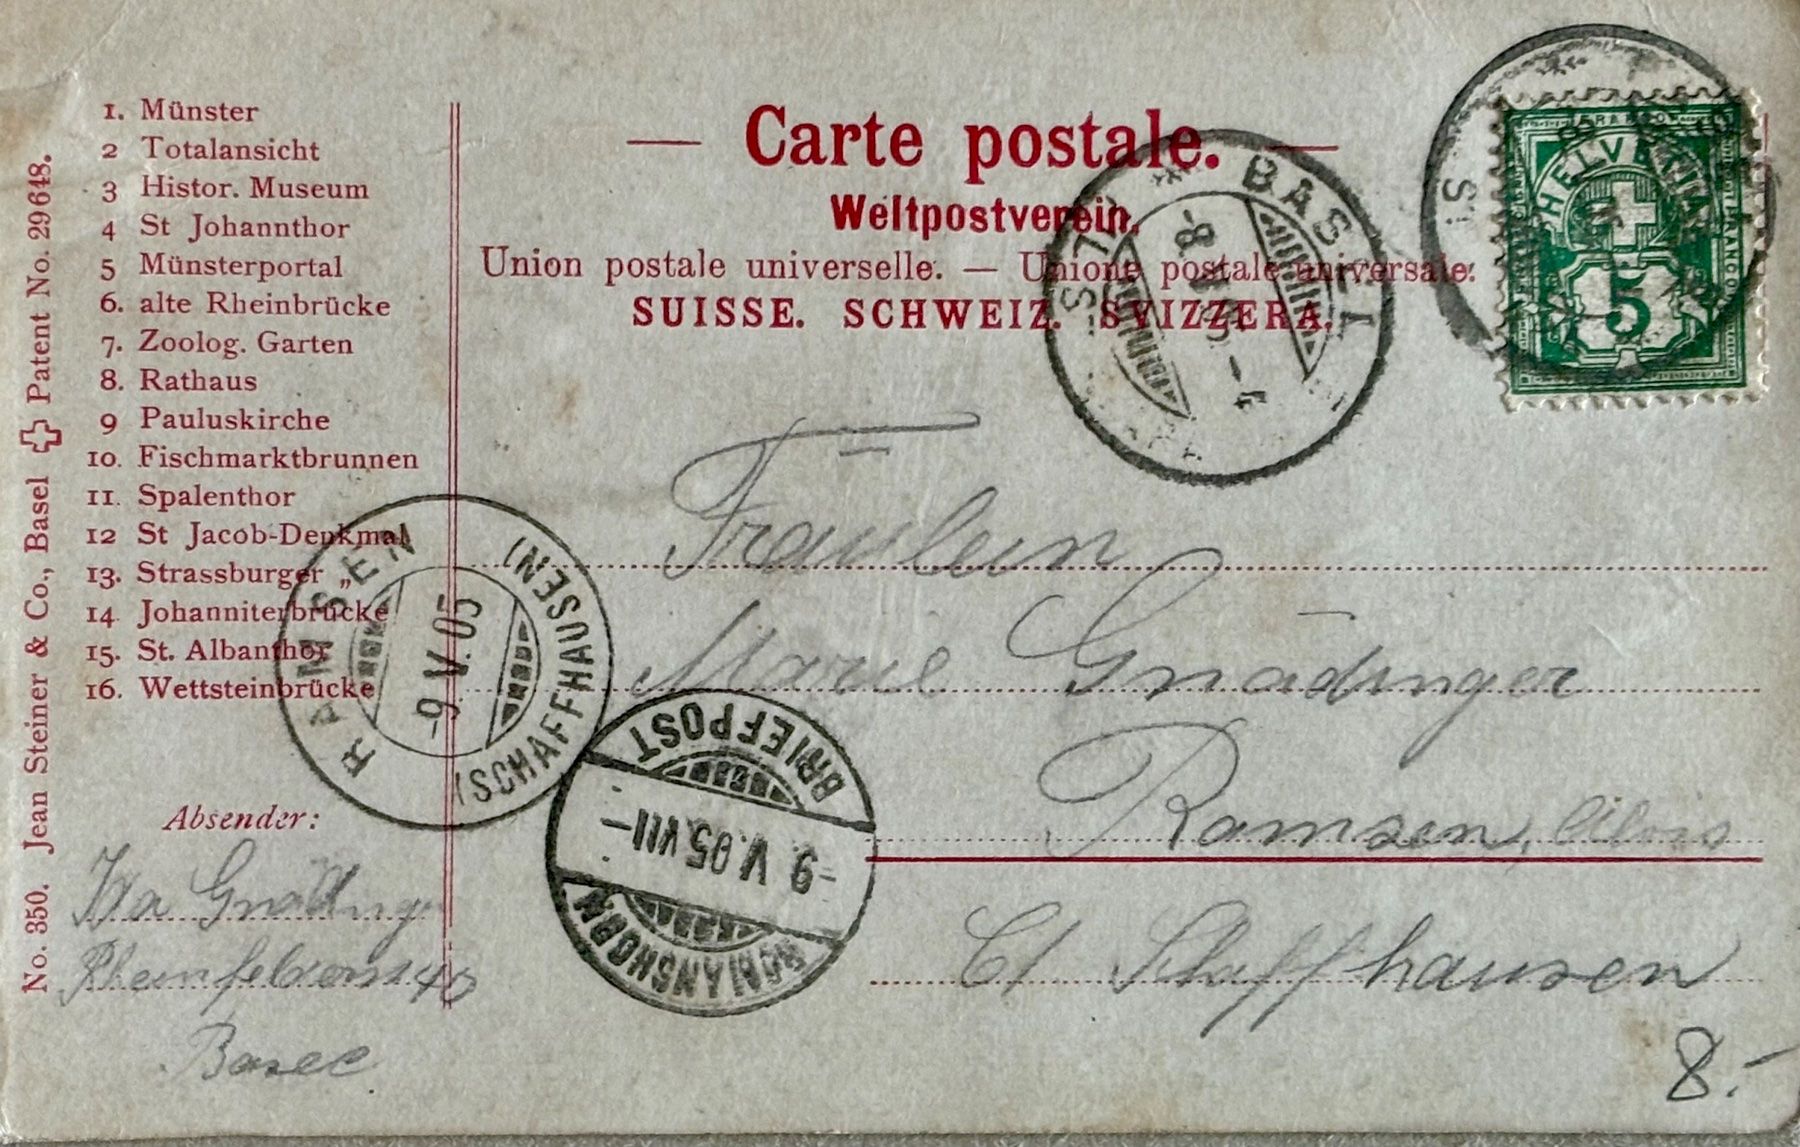 1. Münster
2 Totalansicht
3 Histor. Museum
4 St Johannthor
5 Münsterportal
6. alte Rheinbrücke
7. Zoolog. Garten
8. Rathaus
9 Pauluskirche
10. Fischmarktbrunnen
11. Spalenthor
12 St Jacob-Denkmal
13. Strassburger „
14 Johanniterbrücke
15. St. Albanthor
16. Wettsteinbrücke
No. 350. Jean Steiner & Co., Basel Patent No. 29648.
— Carte postale. —
Weltpostverein.
Union postale universelle. — Unione postale universale.
SUISSE. SCHWEIZ. SVIZZERA.
FRANCO
HELVETIA
5
BASEL
RAMSEN
(SCHAFFHAUSEN)
-9.V.05
BRIEFPOST
-9.V.05.VII-
ROMANSHORN
Fräulein
Marie Gnädinger
Ramsen,
Ct Schaffhausen
Absender:
Ida Gnädinger
Basel
8.-